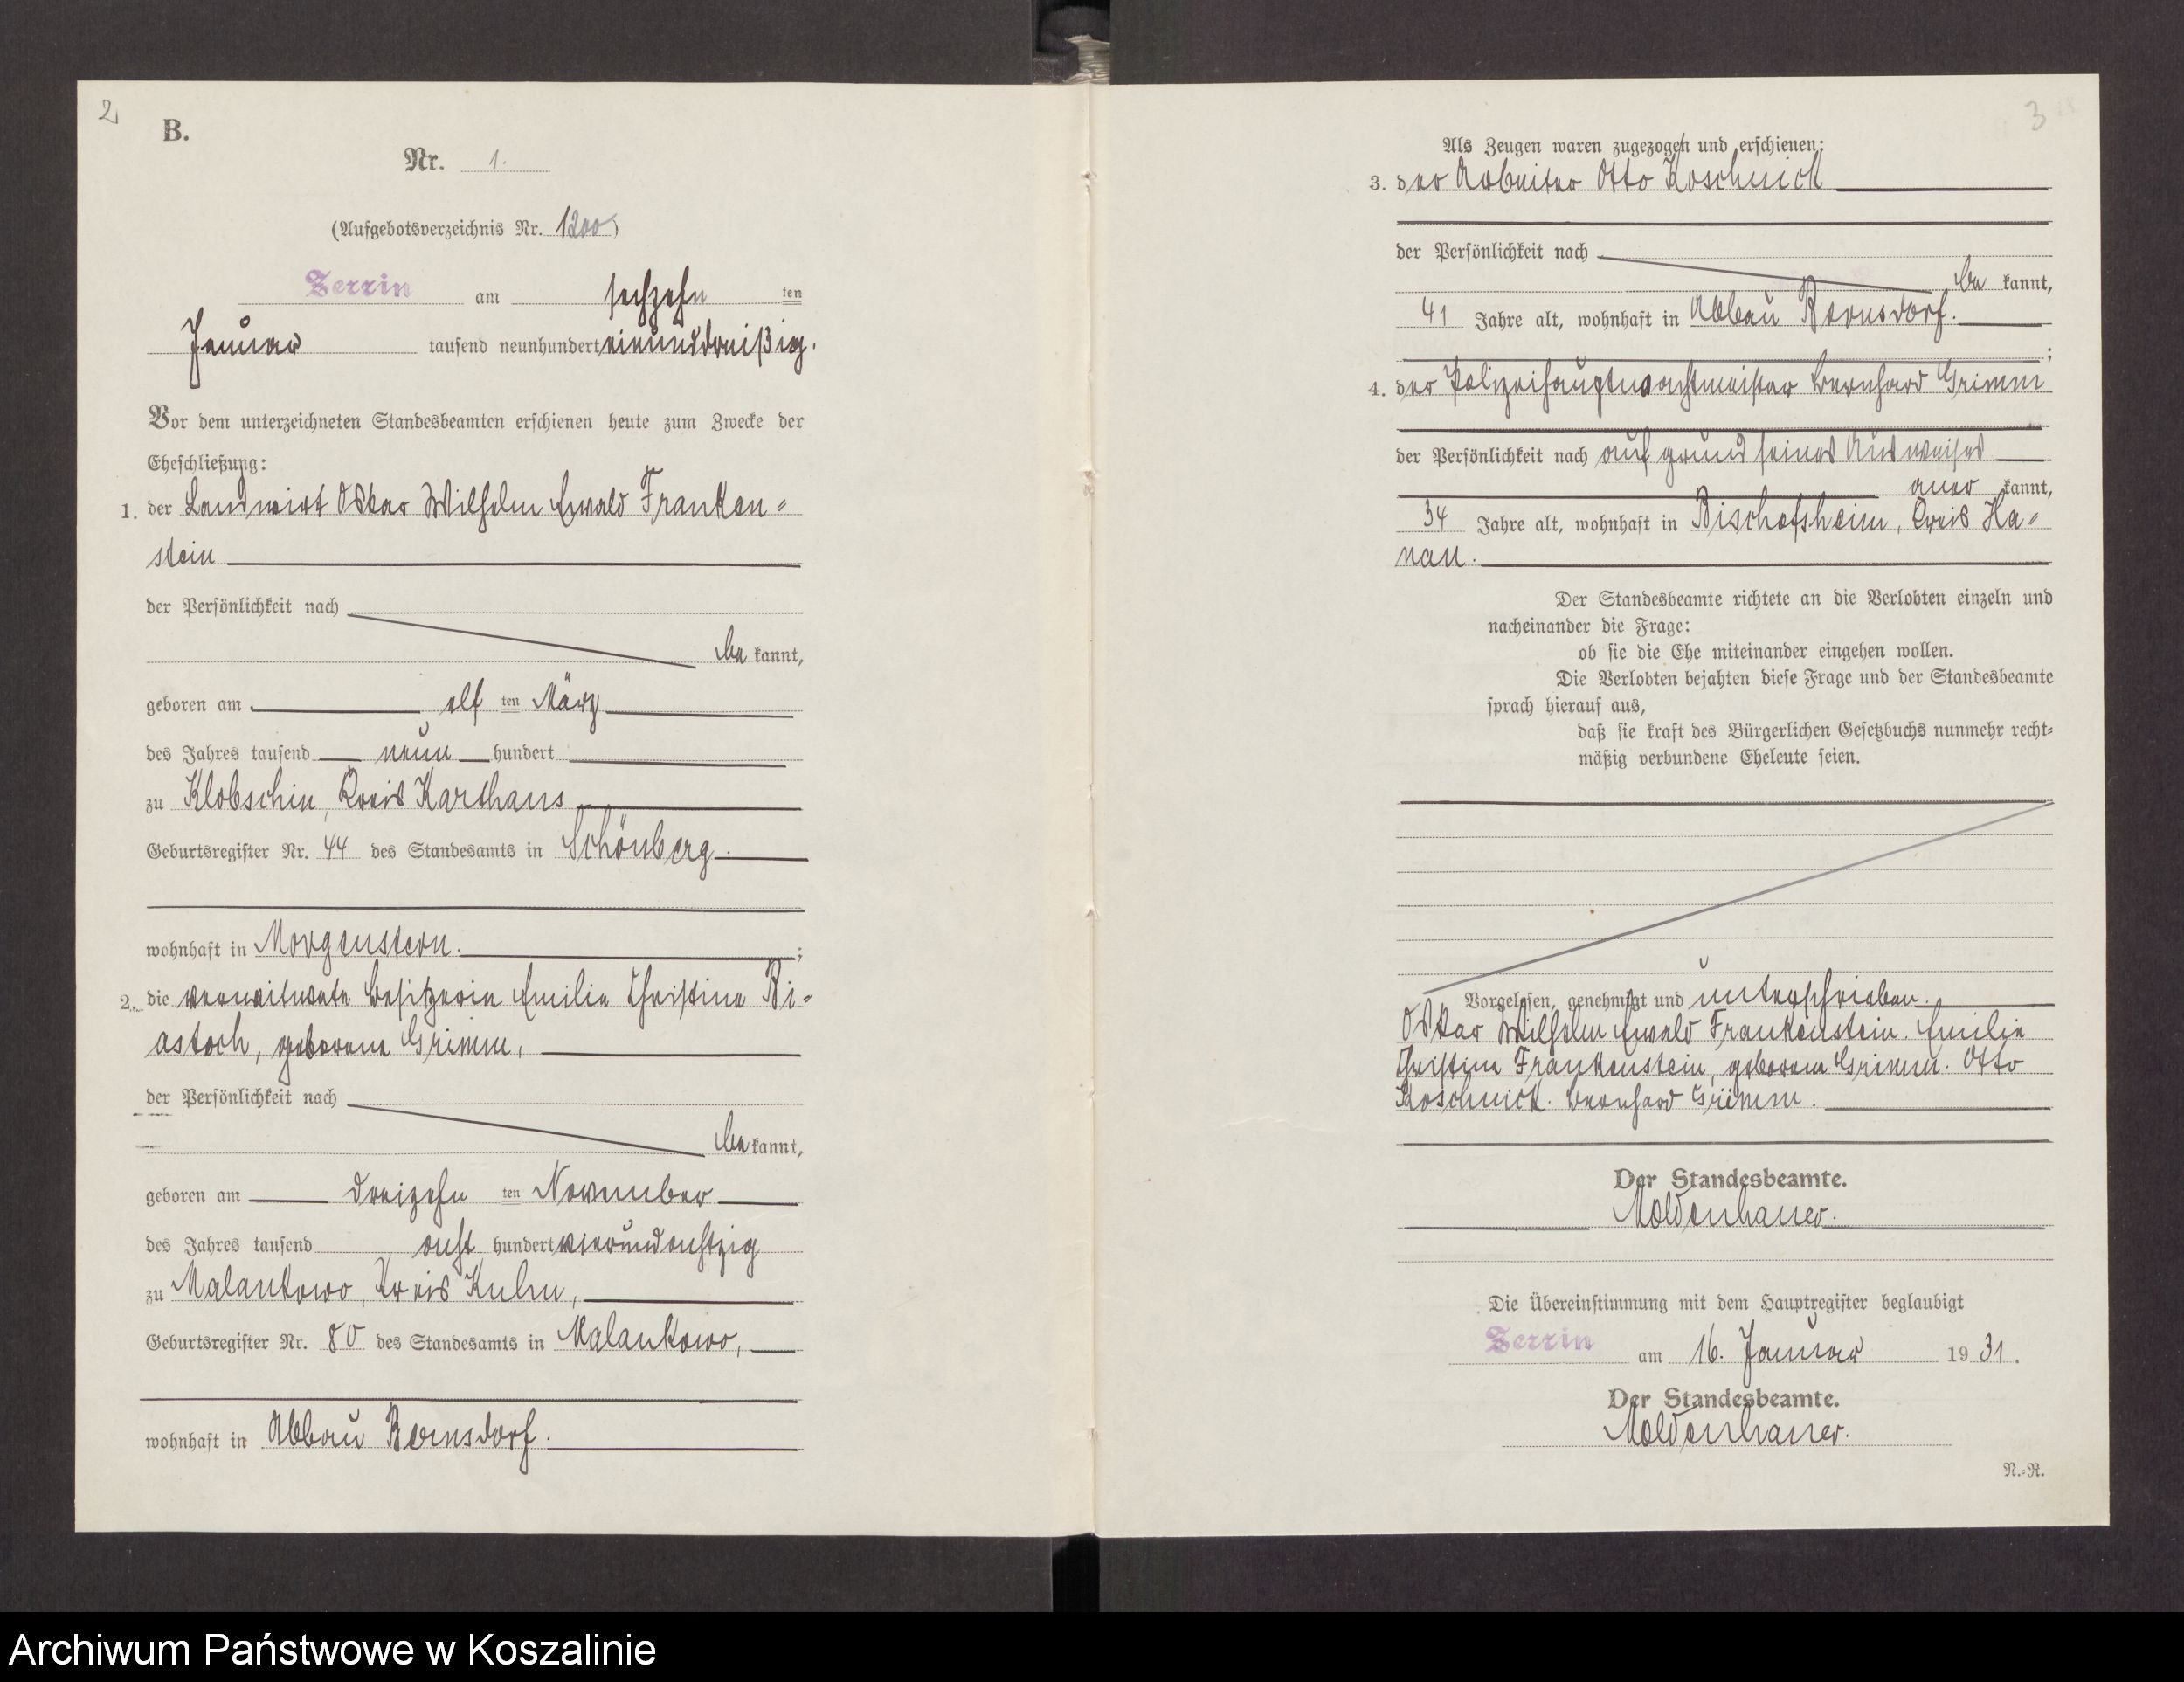 2
B.
Nr. 1.
(Aufgebotsverzeichnis Nr. 1200)
Zerrin am sechzehn ten
Januar tausend neunhundert einunddreißig.
Vor dem unterzeichneten Standesbeamten erschienen heute zum Zwecke der
Eheschließung:
1. der Landwirt Oskar Wilhelm Ewald Franken=
stein
der Persönlichkeit nach
be kannt,
geboren am elf ten März
des Jahres tausend neun hundert
zu Klobschin, Kreis Karthaus
Geburtsregister Nr. 44 des Standesamts in Schönberg.
wohnhaft in Morgenstern. ;
2. die verwitwete Besitzerin Emilie Christine Bi=
astoch, geborene Grimm,
der Persönlichkeit nach
be kannt,
geboren am dreizehn ten November
des Jahres tausend acht hundert vierundachtzig
zu Malankowo, Kreis Kulm,
Geburtsregister Nr. 80 des Standesamts in Malankowo,
wohnhaft in Abbau Bernsdorf.
3
Als Zeugen waren zugezogen und erschienen:
3. der Arbeiter Otto Koschnick
der Persönlichkeit nach
be kannt,
41 Jahre alt, wohnhaft in Abbau Bernsdorf.
;
4. der Polizeihauptwachtmeister Bernhard Grimm
der Persönlichkeit nach auf grund seines Ausweises
aner kannt,
34 Jahre alt, wohnhaft in Bischofsheim, Kreis Ha=
nau.
Der Standesbeamte richtete an die Verlobten einzeln und
nacheinander die Frage:
ob sie die Ehe miteinander eingehen wollen.
Die Verlobten bejahten diese Frage und der Standesbeamte
sprach hierauf aus,
daß sie kraft des Bürgerlichen Gesetzbuchs nunmehr recht=
mäßig verbundene Eheleute seien.
Vorgelesen, genehmigt und unterschrieben.
Oskar Wilhelm Ewald Frankenstein. Emilie
Christine Frankenstein, geborene Grimm. Otto
Koschnick. Bernhard Grimm.
Der Standesbeamte.
Moldenhauer.
Die Übereinstimmung mit dem Hauptregister beglaubigt
Zerrin am 16. Januar 19 31.
Der Standesbeamte.
Moldenhauer.
N.=R.
Archiwum Państwowe w Koszalinie